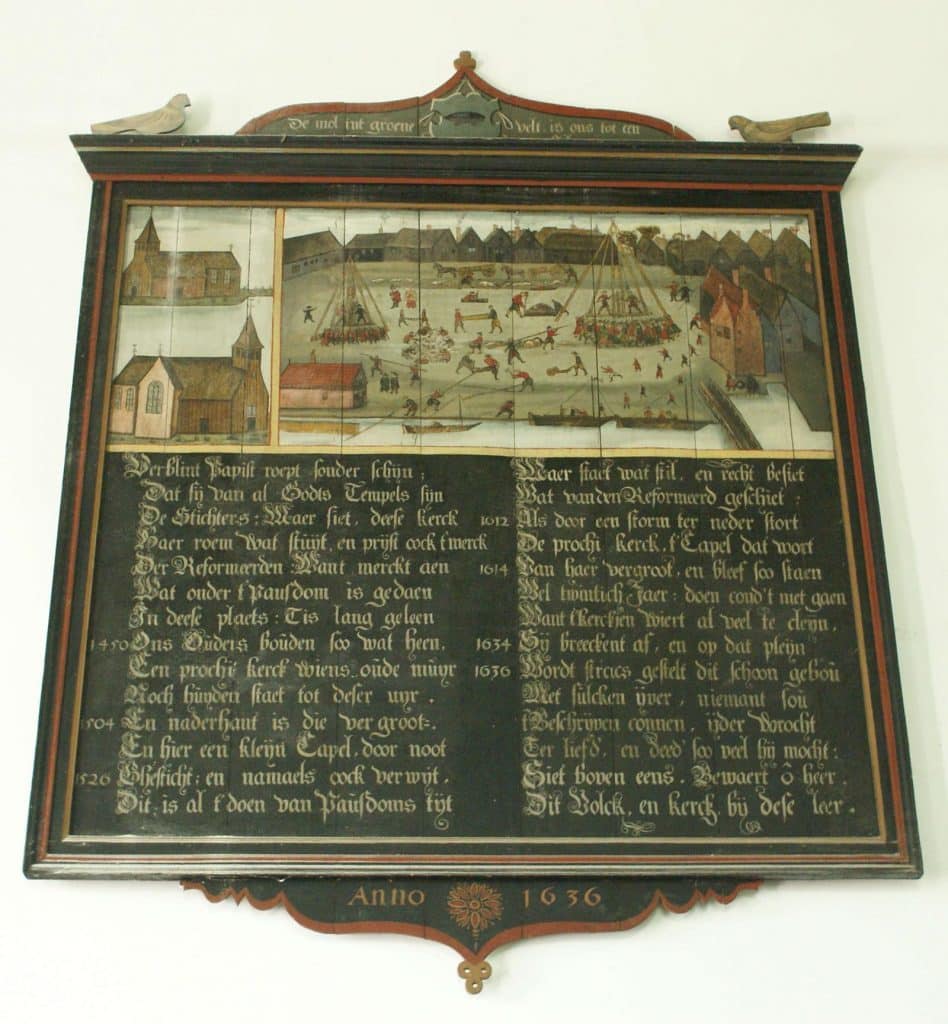 De mol int groene velt is ons tot een
Verblint Papist roept sonder schijn;
Dat sij van al Godts Tempels sijn
De Stichters: Maer siet, deese kerck
Haer roem wat stuÿt, en prijst oock t'werck
Der Reformeerden Want merckt aen
Wat onder t'Pausdom is gedaen
In deese plaets: Tis lang geleen
1450 Ons Ouders bouden soo wat heen,
Een prochi kerck wiens, oude muyr
Noch huyden staet tot deser uyr.
1504 En naderhant is die vergroot:
En hier een kleyn Capel, door noot
1526 Ghesticht: en namaels oock verwijt.
Dit, is al t'doen van Pausdoms tijt
Maer staet wat stil, en recht besiet
Wat van den Reformeerd geschiet:
1612 Als door een storm ter neder stort
De prochi kerck, t'Capel dat wort
1614 Van haer vergroot, en bleef soo staen
Wel twintich Jaer: doen coud't niet gaen
Want t'kerckjen wiert al veel te cleyn,
1634 Sij breeckent af, en op dat pleijn
1636 Wordt stracs gestelt dit schoon gebou
Met sulcken ijver, niemant sou
t'Beschrijven connen, ijder Vorocht
Ter liefd', en deed soo veel hij mocht:
Siet boven eens, Bewaert ô heer,
Dit Volck, en kerck, bij dese leer.
Anno 1636